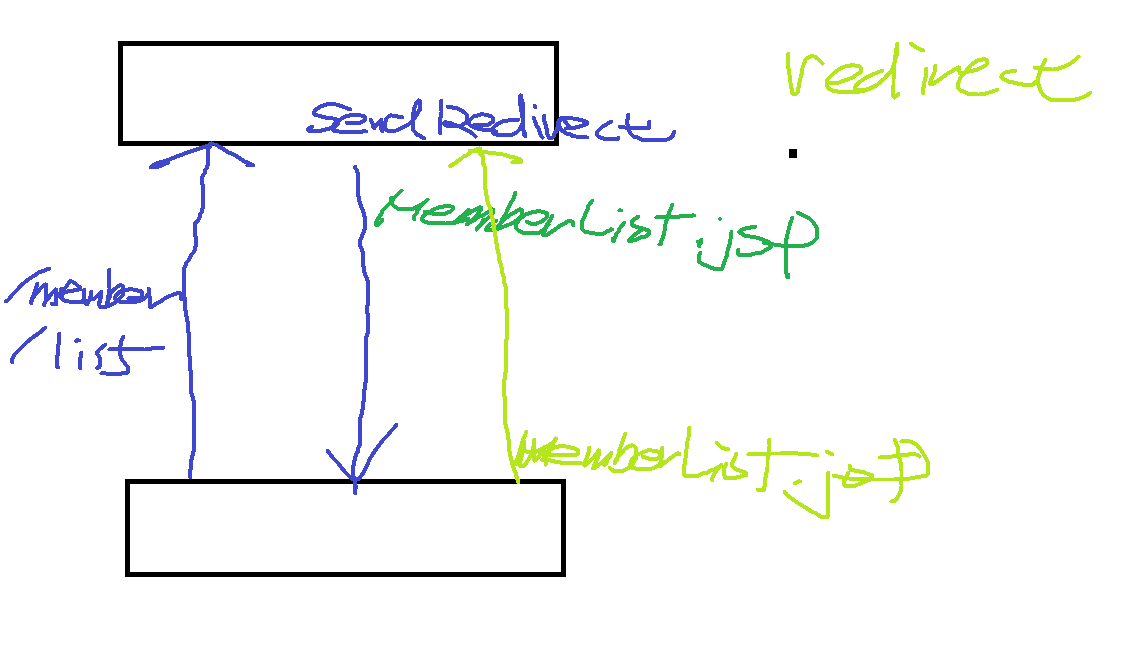 redirect
SendRedirect
MemberList.jsp
/member
/list
MemberList.jsp